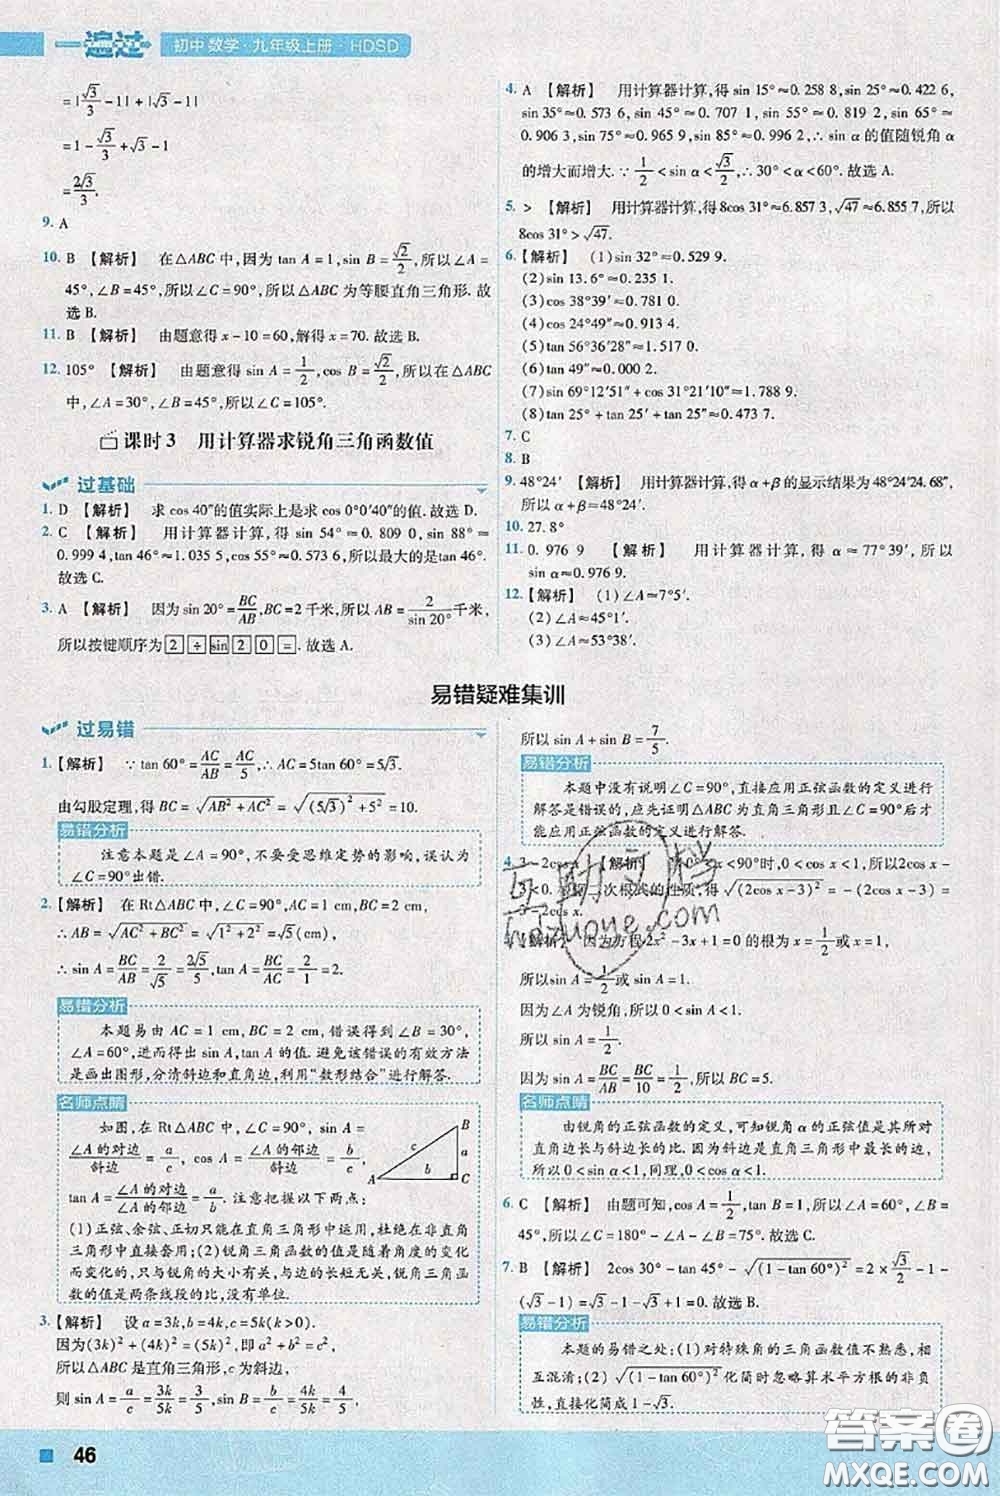 一遍过 初中 数学·九年级上册·HDSD
=|√3/3-1|+|√3-1|
=1-√3/3+√3-1
=2√3/3.
9. A
10. B 【解析】 在△ABC中,因为 tan A=1,sin B=√2/2,所以∠A=
45°,∠B=45°,所以∠C=90°,所以△ABC为等腰直角三角形.故
选B.
11. B 【解析】 由题意得 x-10=60,解得 x=70.故选B.
12. 105° 【解析】 由题意得 sin A=1/2,cos B=√2/2,所以在△ABC
中,∠A=30°,∠B=45°,所以∠C=105°.
课时3 用计算器求锐角三角函数值
过基础
1. D 【解析】 求 cos 40″的值实际上是求 cos 0°0′40″的值.故选D.
2. C 【解析】 用计算器计算,得 sin 54°≈0.809 0,sin 88°≈
0.999 4,tan 46°≈1.035 5,cos 55°≈0.573 6,所以最大的是tan 46°.
故选C.
3. A 【解析】 因为 sin 20°=BC/AB,BC=2千米,所以 AB=2/sin 20°千米,
所以按键顺序为 2 ÷ sin 2 0 = .故选A.
4. A 【解析】 用计算器计算,得 sin 15°≈0.258 8,sin 25°≈0.422 6,
sin 35°≈0.573 6,sin 45°≈0.707 1,sin 55°≈0.819 2,sin 65°≈
0.906 3,sin 75°≈0.965 9,sin 85°≈0.996 2,∴sin α的值随锐角α
的增大而增大.∵1/2<sin α<√3/2,∴30°<α<60°.故选A.
5. > 【解析】 用计算器计算,得8cos 31°≈6.857 3,√47≈6.855 7,所以
8cos 31°>√47.
6. 【解析】 (1)sin 32°≈0.529 9.
(2)sin 13.6°≈0.235 1.
(3)cos 38°39′≈0.781 0.
(4)cos 24°49″≈0.913 4.
(5)tan 56°36′28″≈1.517 1.
(6)tan 49″≈0.000 2.
(7)sin 69°12′51″+cos 31°12′10″≈1.789 9.
(8)tan 25°+sin 25°-cos 25°≈0.473 7.
7. C
8. B
9. 48°24′ 【解析】 用计算器计算,得 α+β的显示结果为48°24′24.68″,
所以 α+β≈48°24′.
10. 27.8°
11. 0.976 9 【解析】 用计算器计算,得 α≈77°39′,所以
sin α≈0.976 9.
12. 【解析】 (1)∠A≈7°5′.
(2)∠A≈45°1′.
(3)∠A≈53°38′.
易错疑难集训
过易错
1. 【解析】 ∵tan 60°=AC/AB=AC/5,∴AC=5tan 60°=5√3.
由勾股定理,得 BC=√(AB²+AC²)=√((5√3)²+5²)=10.
易错分析
注意本题是∠A=90°,不要受思维定势的影响,误认为
∠C=90°出错.
2. 【解析】 在 Rt△ABC中,∠C=90°,AC=1 cm,BC=2 cm,
∴AB=√(AC²+BC²)=√(1²+2²)=√5(cm),
∴sin A=BC/AB=2/√5=2√5/5,tan A=BC/AC=2/1=2.
易错分析
本题易由 AC=1 cm,BC=2 cm,错误得到∠B=30°,
∠A=60°,进而得出 sin A,tan A的值.避免该错误的有效方法
是画出图形,分清斜边和直角边,利用“数形结合”进行解答.
名师点睛
如图,在 Rt△ABC中,∠C=90°,sin A=
∠A的对边/斜边=a/c, cos A=∠A的邻边/斜边=b/c,
tan A=∠A的对边/∠A的邻边=a/b. 注意把握以下两点:
B
c a
b
A C
(1)正弦、余弦、正切只能在直角三角形中运用,杜绝在非直角
三角形中直接套用;(2)锐角三角函数的值是随着角度的变化
而变化的,只与锐角的大小有关,与边的长短无关,锐角三角函
数的值是两条线段的比,没有单位.
3. 【解析】 设 a=3k,b=4k,c=5k(k>0).
因为(3k)²+(4k)²=(5k)²,即 a²+b²=c²,
所以△ABC是直角三角形,c为斜边,
则 sin A=a/c=3k/5k=3/5,sin B=b/c=4k/5k=4/5,
所以 sin A+sin B=7/5.
易错分析
本题中没有说明∠C=90°,直接应用正弦函数的定义进行
解答是错误的,应先证明△ABC为直角三角形且∠C=90°后才
能应用正弦函数的定义进行解答.
4. 3-2cos x 【解析】 0°<x<90°时,0<cos x<1,所以2cos x-
3<0.根据二次根式的性质,得 √((2cos x-3)²)=-(2cos x-3)=
3-2cos x.
5. 【解析】 因为方程2x²-3x+1=0的根为 x=1/2或 x=1,
所以sin A=1/2或 sin A=1.
因为∠A为锐角,所以0<sin A<1.
所以 sin A=1/2.
因为 sin A=BC/AB=BC/10=1/2,所以 BC=5.
名师点睛
由锐角的正弦函数的定义,可知锐角α的正弦值是其所对
直角边长与斜边长的比.因为斜边是直角三角形中最长的边,
所以0<sin α<1,同理,0<cos α<1.
6. C 【解析】 由题可知,cos A=1/2,tan B=1,所以∠A=60°,∠B=
45°,所以∠C=180°-∠A-∠B=75°.故选C.
7. B 【解析】 2cos 30°-tan 45°-√((1-tan 60°)²)=2×√3/2-1-
(√3-1)=√3-1-√3+1=0.故选B.
易错分析
本题的易错之处:(1)对特殊角的三角函数值不熟悉,相
互混淆;(2)√((1-tan 60°)²)化简时忽略算术平方根的非负
性,直接化简成1-√3.
46
互助文档
hdzuoye.com
答案圈
MXQE.COM